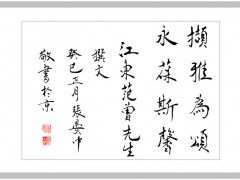 擷雅為頌
永葆斯馨
江東范曾先生
撰文
癸巳正月張安中
敬書於京